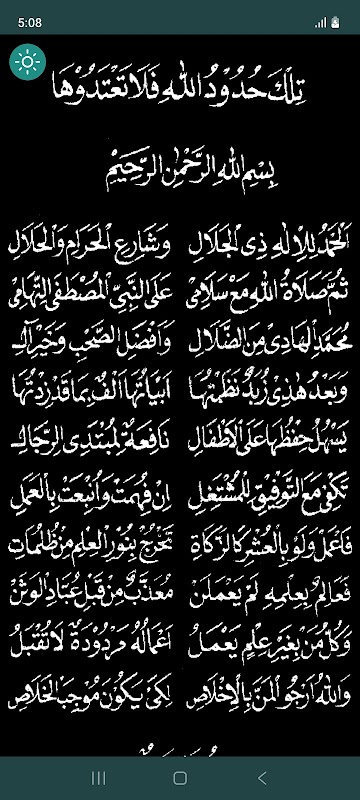 5:08
تِلْكَ حُدُوْدُ اللهِ فَلَا تَعْتَدُوْهَا
بِسْمِ اللهِ الرَّحْمٰنِ الرَّحِيْمِ
اَلْحَمْدُ لِلْاِلٰهِ ذِى الْجَلَالِ وَشَارِعِ الْحَرَامِ وَالْحَلَالِ
ثُمَّ صَلَاةُ اللهِ مَعْ سَلَامِىْ عَلَى النَّبِيِّ الْمُصْطَفَى التِّهَامِى
مُحَمَّدِ الْهَادِىْ مِنَ الضَّلَالِ وَاَفْضَلِ الصَّحْبِ وَخَيْرِ اٰلِ
وَبَعْدُ هٰذِىْ زُبَدٌ نَظَمْتُهَا اَبْيَاتُهَا اَلْفٌ بِمَا قَدْ زِدْتُهَا
يَسْهُلُ حِفْظُهَا عَلَى الْاَطْفَالِ نَافِعَةٌ لِمُبْتَدِى الرِّجَالِ
تَكْفِىْ مَعَ التَّوْفِيْقِ لِلْمُشْتَغِلِ اِنْ فُهِمَتْ وَاُتْبِعَتْ بِالْعَمَلِ
فَاعْمَلْ وَلَوْ بِالْعُشْرِ كَالزَّكَاةِ تَخْرُجْ بِنُوْرِ الْعِلْمِ مِنْ ظُلُمَاتِ
فَعَالِمٌ بِعِلْمِهِ لَمْ يَعْمَلَنْ مُعَذَّبٌ مِنْ قَبْلِ عُبَّادِ الْوَثَنْ
وَكُلُّ مَنْ بِغَيْرِ عِلْمٍ يَعْمَلُ اَعْمَالُهُ مَرْدُوْدَةٌ لَا تُقْبَلُ
وَاللهَ اَرْجُو الْمَنَّ بِالْاِخْلَاصِ لِكَىْ يَكُوْنَ مُوْجِبَ الْخَلَاصِ